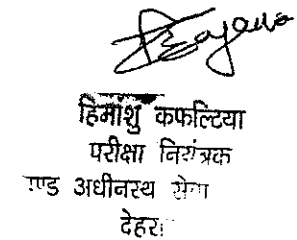 हिमांशु कफल्टिया
परीक्षा नियंत्रक
ण्ड अधीनस्थ सेवा
देहरा